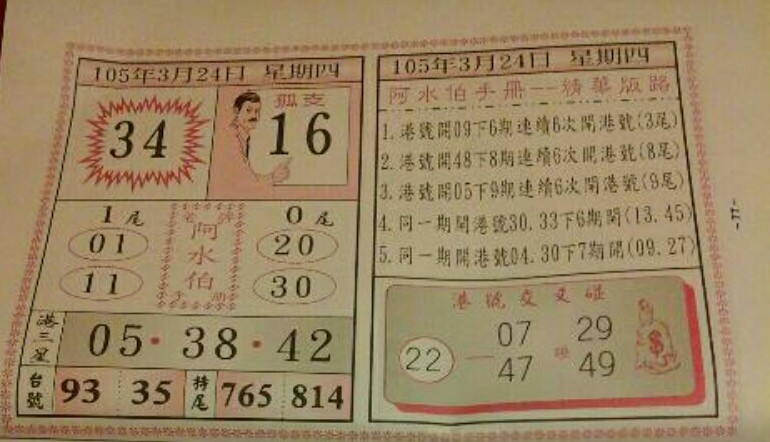 105年3月24日 星期四
34
孤支
16
1尾 0尾
老牌
阿水伯
手冊
01 20
11 30
港三星 05·38·42
台號 93 35 特尾 765 814
105年3月24日 星期四
阿水伯手冊--精華版路
1.港號開09下6期連續6次開港號(3尾)
2.港號開48下8期連續6次開港號(8尾)
3.港號開05下9期連續6次開港號(9尾)
4.同一期開港號30.33下6期開(13.45)
5.同一期開港號04.30下7期開(09.27)
港號交叉碰
07 29
22 — 碰
47 49
$
-77-